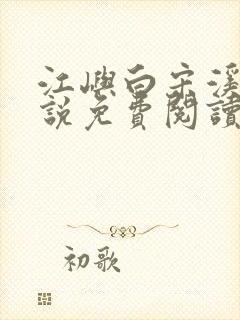 江嶼白宋溪
說免費閱讀
初歌